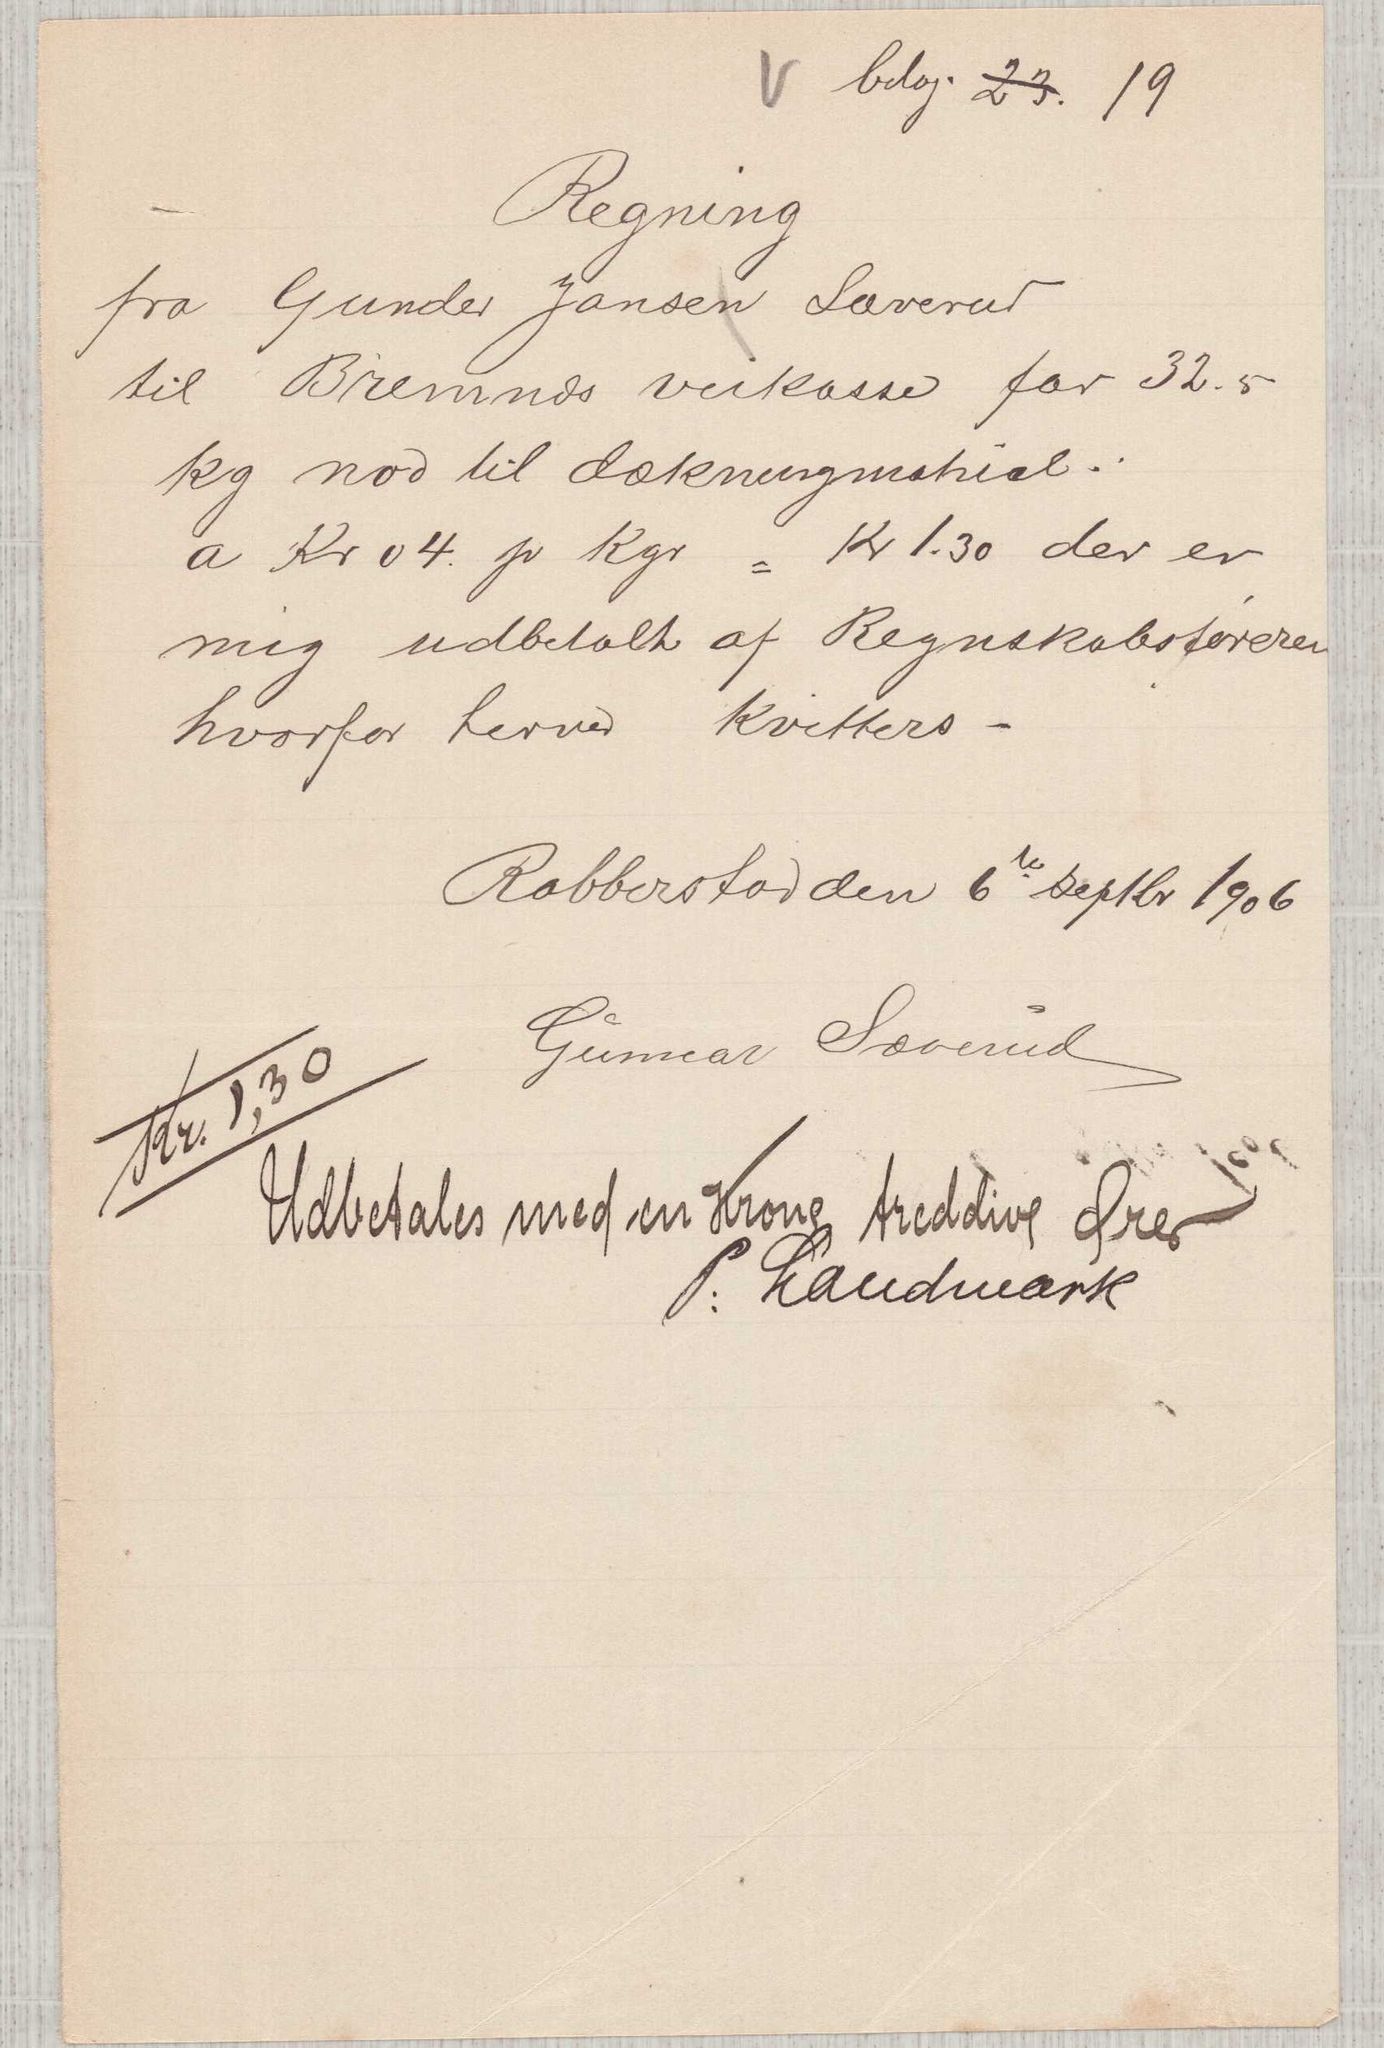 V bdag. 23. 19
Regning
fra Gunder Jansen Sæverud
til Bremnds veikasse for 32.5
kg nod til dækningmatrial.
a Kr 04. pr Kgr = Kr 1.30 der er
mig udbetalt af Regnskabsføreren
hvorfor herved Kvitters -
Robberstad den 6te septbr 1906
Gunnar Sæverud
Kr. 1,30
Udbetales med en Krone treddive Ører
P. Landmark